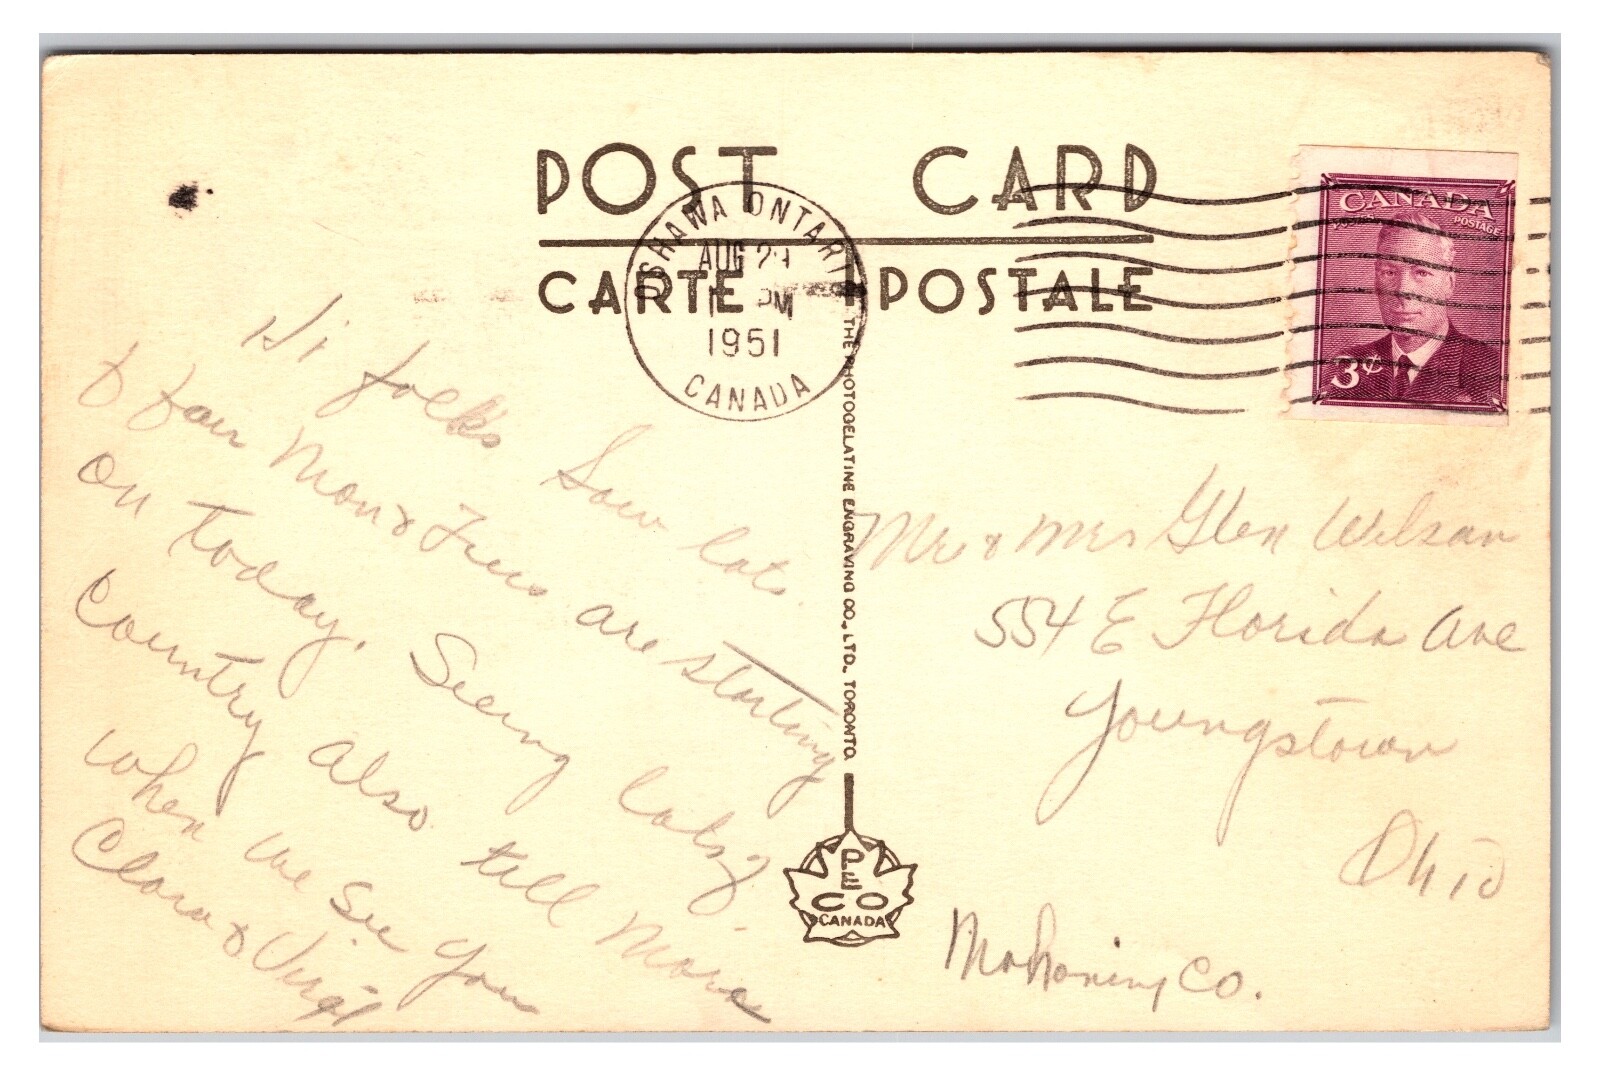 POST CARD
CARTE POSTALE
OSHAWA ONTARIO
AUG 29
PM
1951
CANADA
CANADA
POSTES POSTAGE
3¢
THE PHOTOGELATINE ENGRAVING CO., LTD., TORONTO
PECO
CANADA
Hi folks Saw lots
& fair Mon &
are starting
on today. Seeing lots
Country also till more
when we see you
Clara & Virgil
Mr & Mrs Glen Wilson
554 E Florida Ave
Youngstown
Ohio
Mahoning Co.